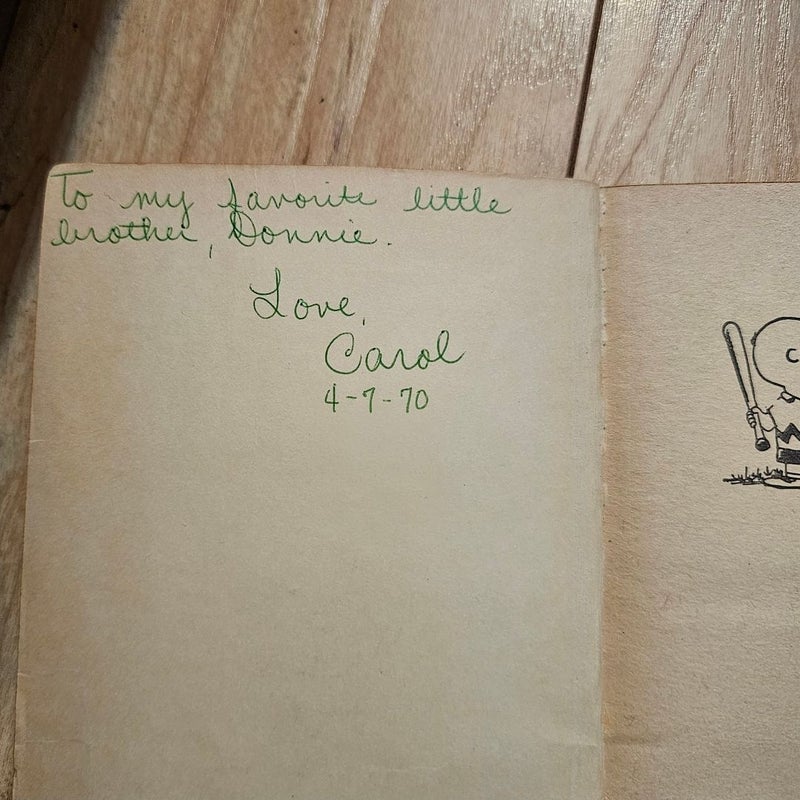 To my favorite little
brother, Donnie.
Love,
Carol
4-7-70